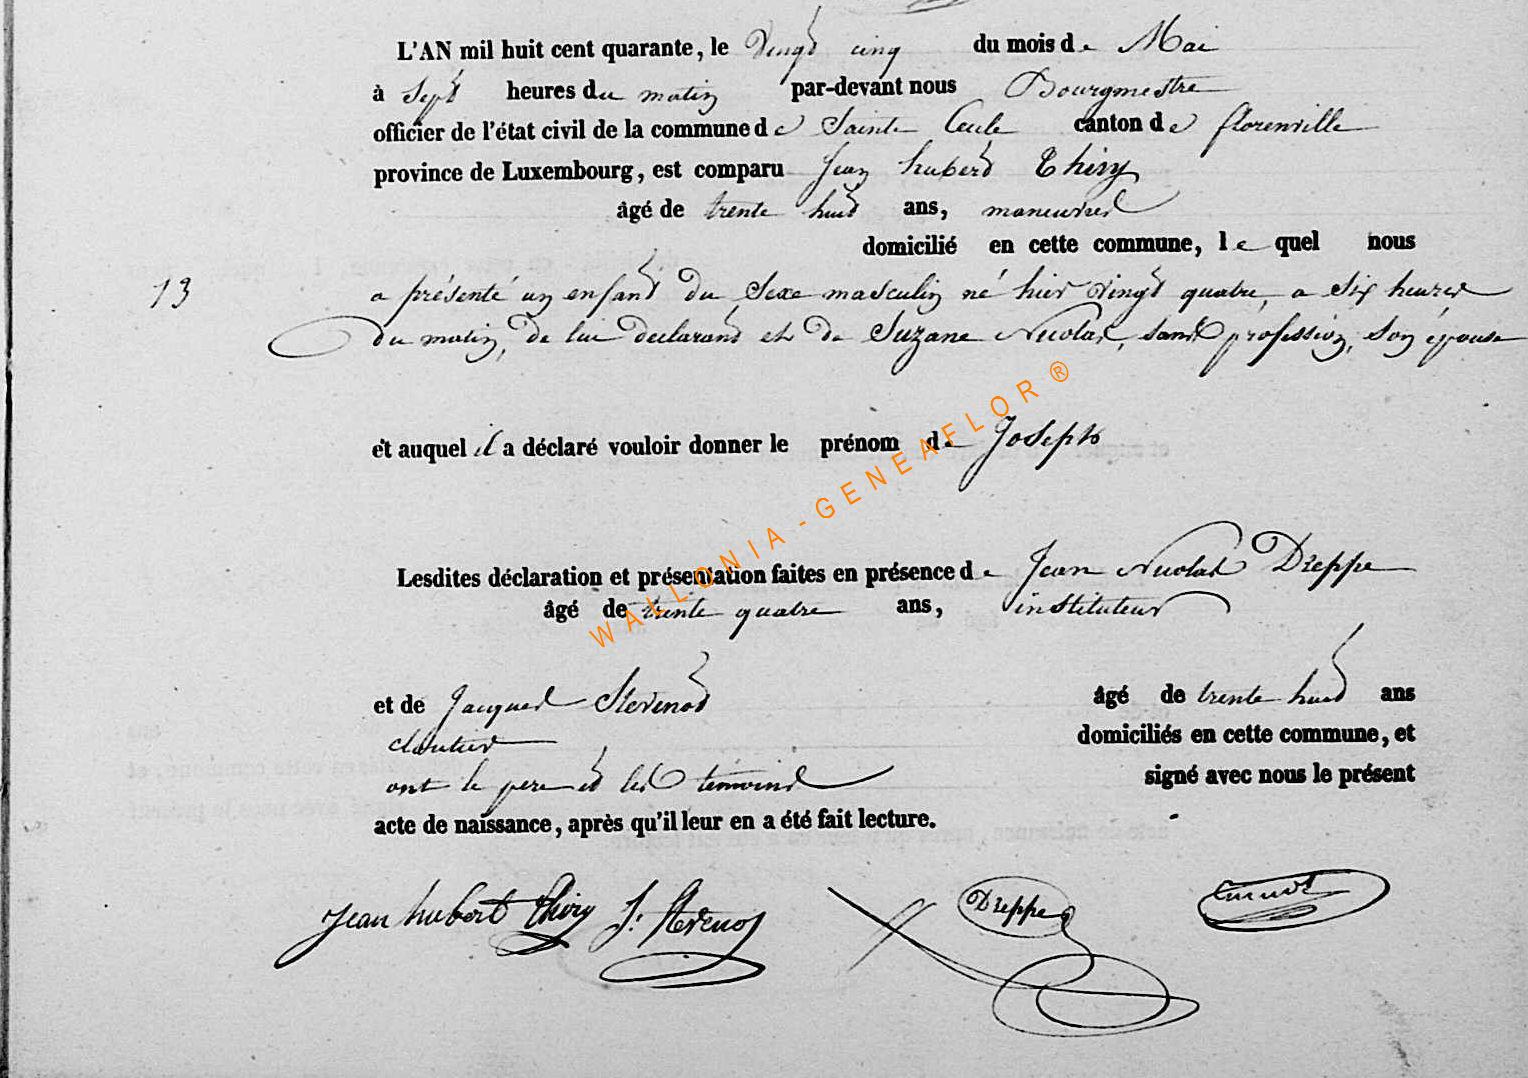 L'AN mil huit cent quarante, le Vingt cinq du mois de Mai
à Sept heures du matin par-devant nous Bourgmestre
officier de l'état civil de la commune de Sainte Cecile canton de florenville
province de Luxembourg, est comparu Jean hubert Thiry
âgé de trente huit ans, manuvres
domicilié en cette commune, le quel nous
13 a présenté un enfant du Sexe masculin né hier Vingt quatre, a Six heures
Du matin, de lui declarant et de Suzane Nicolas, sans profession, Son épouse
et auquel il a déclaré vouloir donner le prénom de Joseph
WALLONIA-GENEAFLOR®
Lesdites déclaration et présentation faites en présence de Jean Nicolas Dreppe
âgé de trente quatre ans, instituteur
et de Jacques Stevenot âgé de trente huit ans
cloutier domiciliés en cette commune, et
ont le pere et les témoins signé avec nous le présent
acte de naissance, après qu'il leur en a été fait lecture.
Jean hubert Thiry J. Stevenot Dreppe